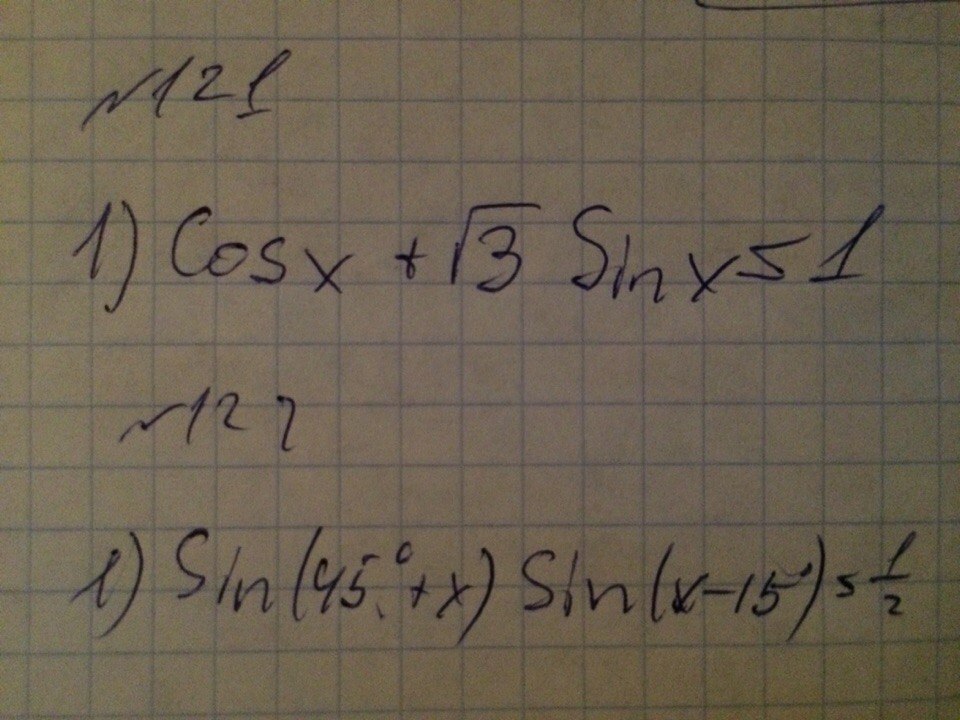 №121
1) Cos x + √3 Sin x = 1
№122
1) Sin(45°+x) Sin(x-15°) = 1/2